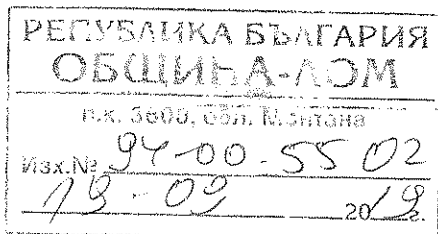 РЕПУБЛИКА БЪЛГАРИЯ
ОБЩИНА-ЛОМ
п.к. 3600, обл. Монтана
Изх.№ 94-00-5502
19-09 2019г.